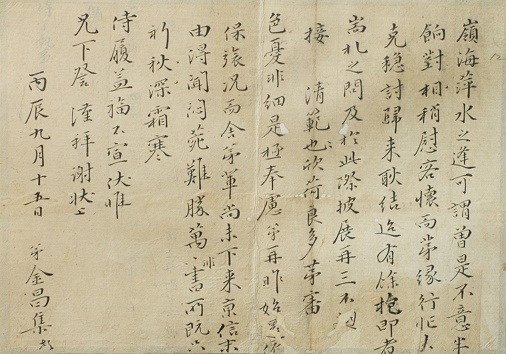 嶺海萍水之逢可謂曾是不意半
餉對相稍慰客懷而第緣行忙未
克穩討歸来耿結迨有餘抱即者
崗札之問及於此際披展再三不
接 清範也欣荷良多第審
色憂非細是極奉慮 弟再昨始
保旅况而舍弟軍尚未下来京信末
由得聞悶菀難勝萬〻非書所既只
祈秋深霜寒
侍履益福不宣伏惟
兄下登 謹拜謝狀上
丙辰九月十五日
弟 金昌集 頓